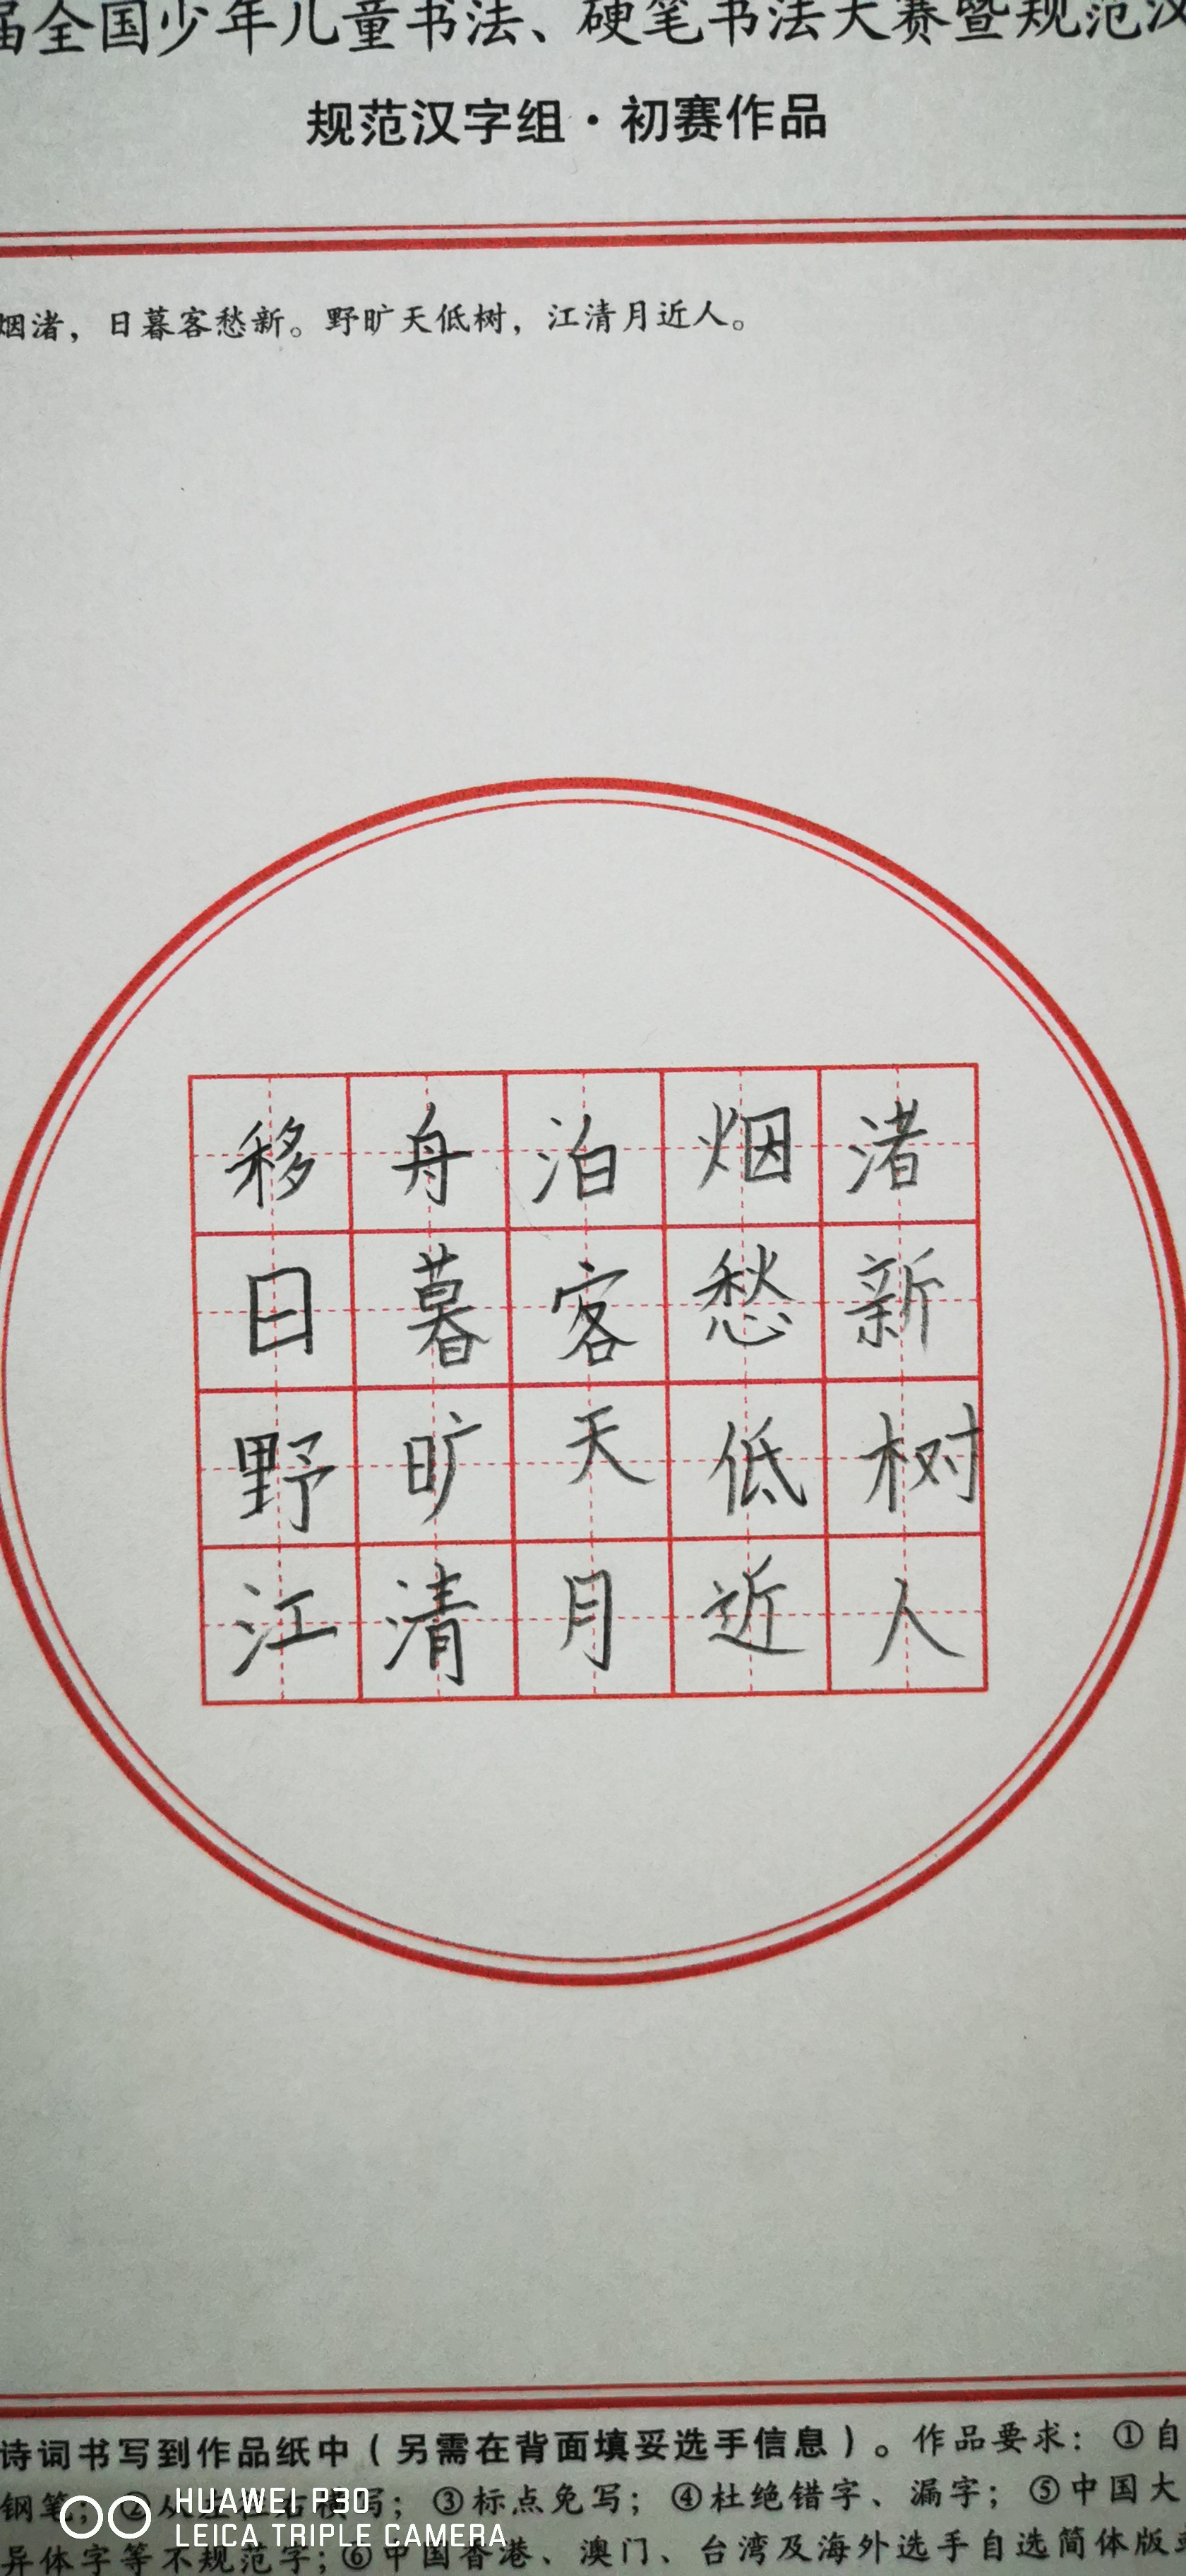 届全国少年儿童书法、硬笔书法大赛暨规范汉
规范汉字组·初赛作品
烟渚，日暮客愁新。野旷天低树，江清月近人。
移舟泊烟渚
日暮客愁新
野旷天低树
江清月近人
诗词书写到作品纸中（另需在背面填妥选手信息）。作品要求：①自
钢笔；②从左往右横写；③标点免写；④杜绝错字、漏字；⑤中国大
异体字等不规范字；⑥中国香港、澳门、台湾及海外选手自选简体版或
HUAWEI P30
LEICA TRIPLE CAMERA